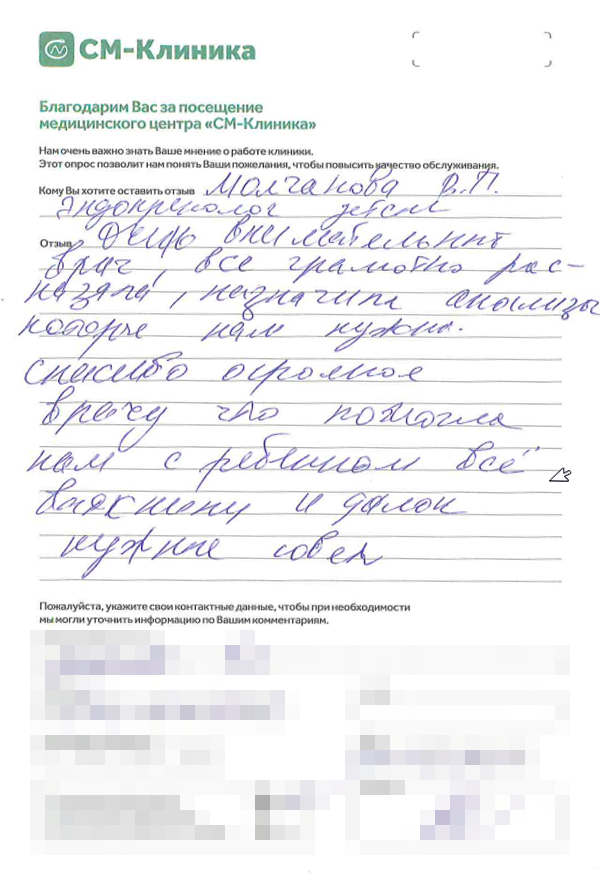 СМ-Клиника
Благодарим Вас за посещение
медицинского центра «СМ-Клиника»
Нам очень важно знать Ваше мнение о работе клиники.
Этот опрос позволит нам понять Ваши пожелания, чтобы повысить качество обслуживания.
Кому Вы хотите оставить отзыв Молчанова
Эндокринолог детск
Отзыв Очень внимательный
врач, все грамотно рас-
казала, назначила анализы
которые нам нужны.
спасибо огромное
врачу что помогла
нам с ребенком всё
и
нужный совет
Пожалуйста, укажите свои контактные данные, чтобы при необходимости
мы могли уточнить информацию по Вашим комментариям.